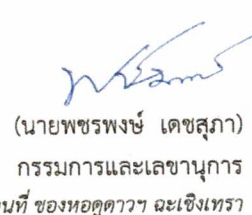 (นายพชรพงษ์ เดชสุภา)
กรรมการและเลขานุการ
ของหอดูดาวฯ ฉะเชิงเทรา